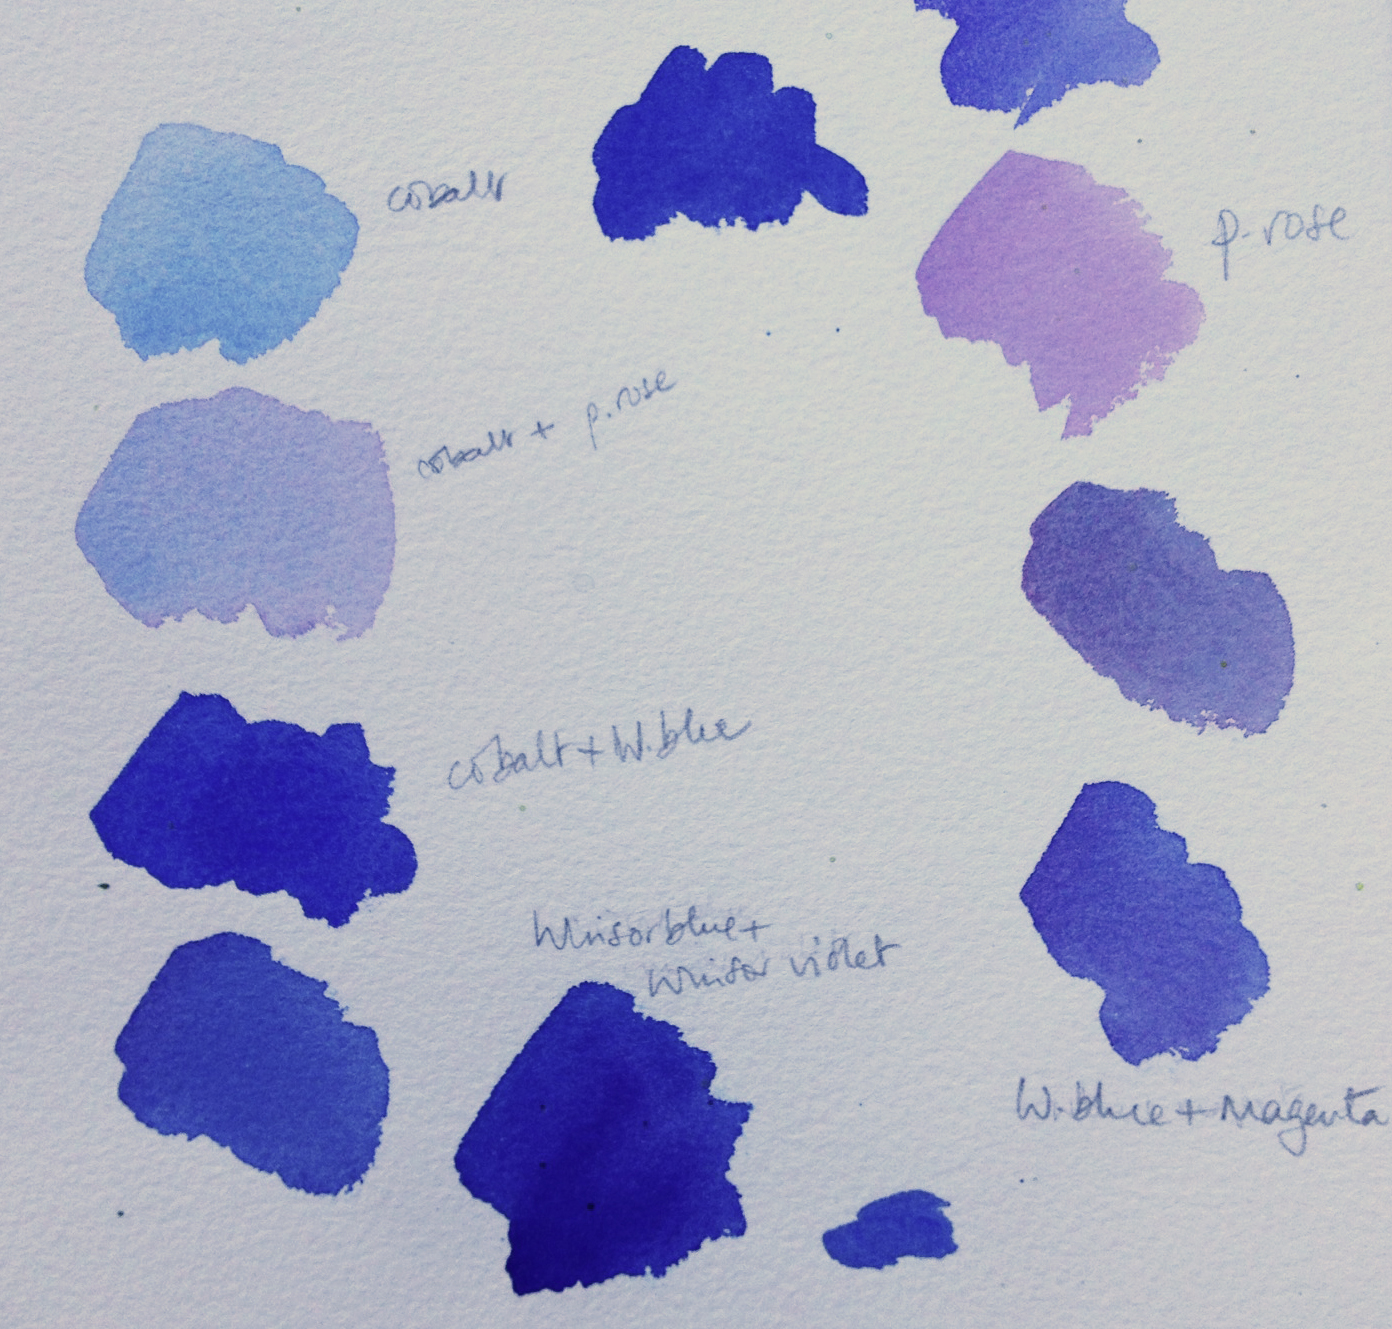 cobalt
p.rose
cobalt + p.rose
cobalt + W.blue
Winsor blue +
Winsor violet
W.blue + Magenta